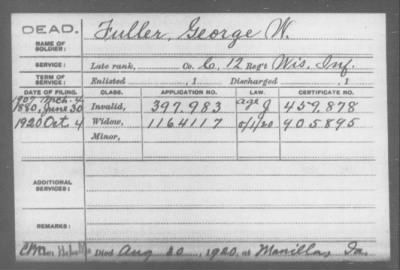 DEAD.
NAME OF SOLDIER:
Fuller, George W.
SERVICE: Late rank, Co. C, 12 Reg't Wis. Inf.
TERM OF SERVICE: Enlisted , 1 Discharged , 1
DATE OF FILING. CLASS. APPLICATION NO. LAW. CERTIFICATE NO.
1907 Mch. 4 age
1880, June 30 Invalid, 397.983 J 459.878
1920 Oct. 4 Widow, 1164117 5/1/20 905895
Minor,
ADDITIONAL SERVICES:
REMARKS:
Died Aug 20, 1920, at Manilla, Ia.